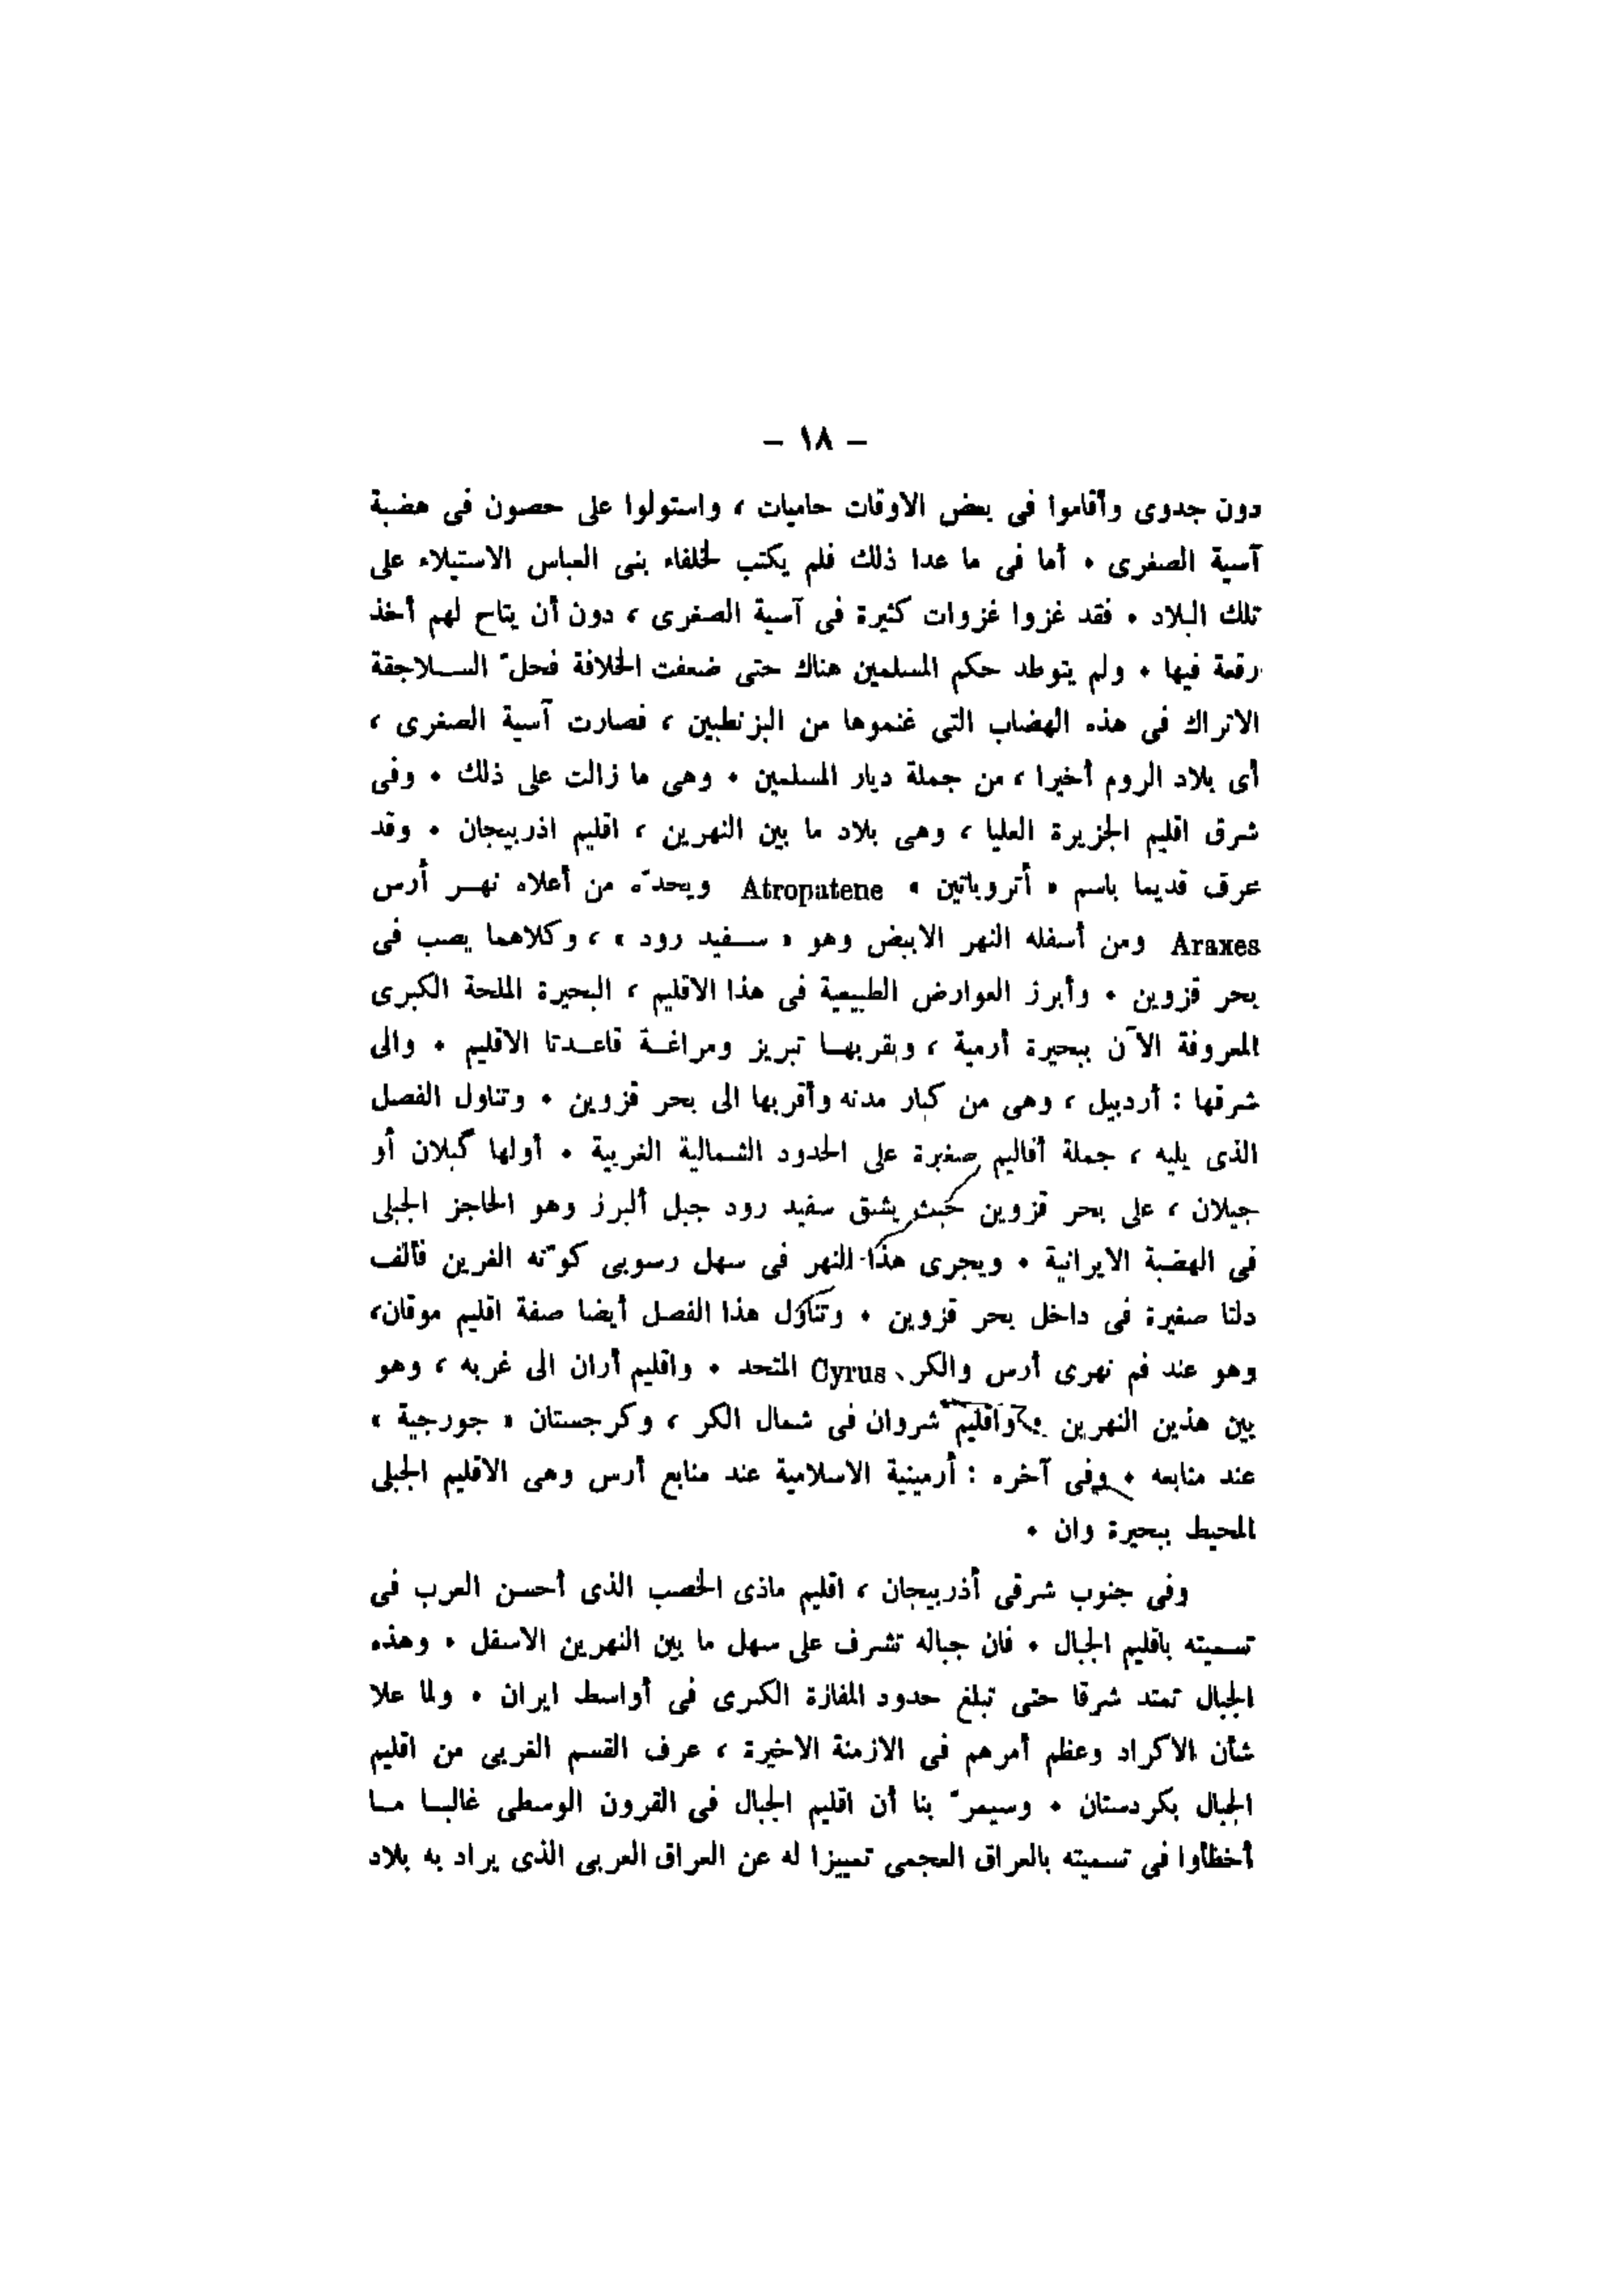 – ١٨ –
دون جدوى وأقاموا فى بعض الاوقات حاميات ، واستولوا على حصون فى هضبة
آسية الصغرى • أما فى ما عدا ذلك فلم يكتب لخلفاء بنى العباس الاستيلاء على
تلك البلاد • فقد غزوا غزوات كثيرة فى آسية الصغرى ، دون أن يتاح لهم أخذ
رقعة فيها • ولم يتوطد حكم المسلمين هناك حتى ضعفت الخلافة فحلّ الســلاجقة
الاتراك فى هذه الهضاب التى غنموها من البزنطيين ، فصارت آسية الصغرى ،
أى بلاد الروم أخيرا ، من جملة ديار المسلمين • وهى ما زالت على ذلك • وفى
شرق اقليم الجزيرة العليا ، وهى بلاد ما بين النهرين ، اقليم اذربيجان • وقد
عرف قديما باسم « أتروباتين » Atropatene ويحدّه من أعلاه نهــر أرس
Araxes ومن أسفله النهر الابيض وهو « ســفيد رود » ، وكلاهما يصب فى
بحر قزوين • وأبرز العوارض الطبيعية فى هذا الاقليم ، البحيرة الملحة الكبرى
المعروفة الآن ببحيرة أرمية ، وبقربهــا تبريز ومراغــة قاعــدتا الاقليم • والى
شرقها : أردبيل ، وهى من كبار مدنه وأقربها الى بحر قزوين • وتناول الفصل
الذى يليه ، جملة أقاليم صغيرة على الحدود الشمالية الغربية • أولها گيلان أو
جيلان ، على بحر قزوين حيث يشق سفيد رود جبل ألبرز وهو الحاجز الجبلى
فى الهضبة الايرانية • ويجرى هذا النهر فى سهل رسوبى كوّنه الغرين فألف
دلتا صغيرة فى داخل بحر قزوين • وتناول هذا الفصل أيضا صفة اقليم موقان،
وهو عند فم نهرى أرس والكر Cyrus المتحد • واقليم أران الى غربه ، وهو
بين هذين النهرين واقليم شروان فى شمال الكر ، وكرجستان « جورجية »
عند منابعه • وفى آخره : أرمينية الاسلامية عند منابع أرس وهى الاقليم الجبلى
المحيط ببحيرة وان •
وفى جنوب شرقى أذربيجان ، اقليم ماذى الخصب الذى أحسن العرب فى
تسميته باقليم الجبال • فان جباله تشرف على سهل ما بين النهرين الاسفل • وهذه
الجبال تمتد شرقا حتى تبلغ حدود المفازة الكبرى فى أواسط ايران • ولما علا
شأن الاكراد وعظم أمرهم فى الازمنة الاخيرة ، عرف القسم الغربى من اقليم
الجبال بكردستان • وسيمرّ بنا أن اقليم الجبال فى القرون الوسطى غالبــا مــا
أخطأوا فى تسميته بالعراق العجمى تمييزا له عن العراق العربى الذى يراد به بلاد